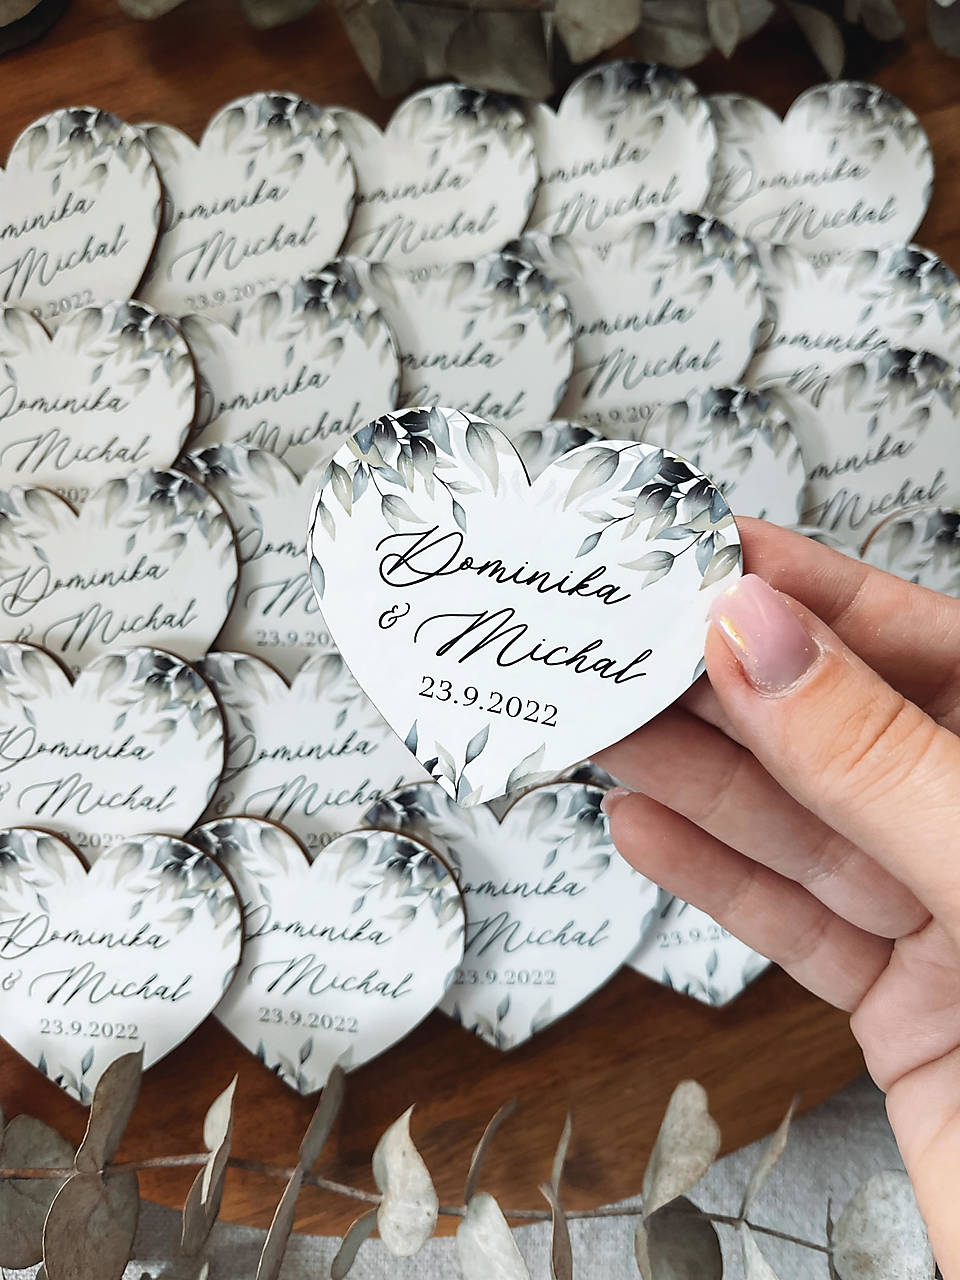 Dominika
& Michal
23.9.2022